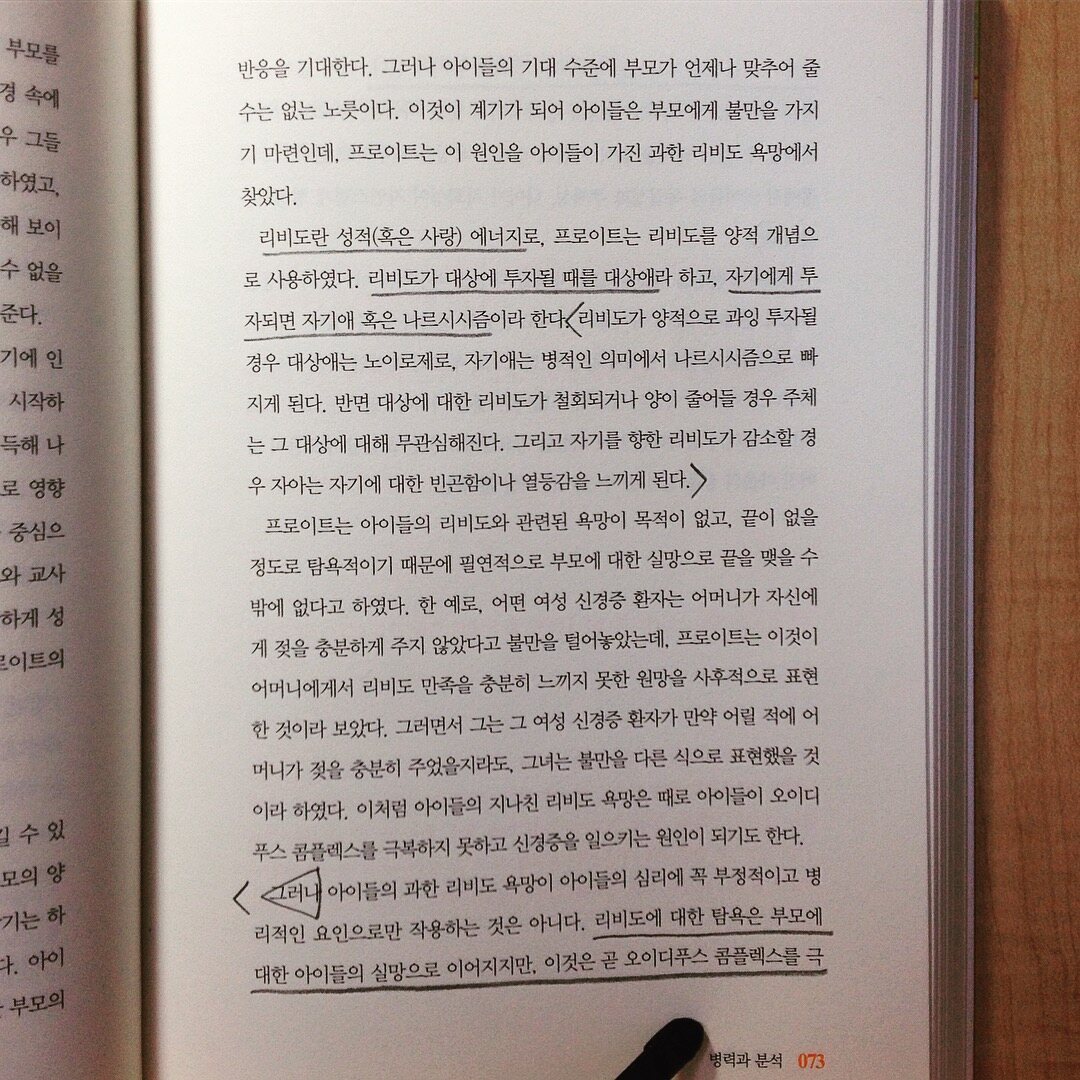 부모를
경 속에
우 그들
하였고,
해 보이
수 없을
준다.
기에 인
시작하
득해 나
로 영향
중심으
와 교사
하게 성
로이트의
길 수 있
모의 양
기는 하
다. 아이
부모의
반응을 기대한다. 그러나 아이들의 기대 수준에 부모가 언제나 맞추어 줄
수는 없는 노릇이다. 이것이 계기가 되어 아이들은 부모에게 불만을 가지
기 마련인데, 프로이트는 이 원인을 아이들이 가진 과한 리비도 욕망에서
찾았다.
리비도란 성적(혹은 사랑) 에너지로, 프로이트는 리비도를 양적 개념으
로 사용하였다. 리비도가 대상에 투자될 때를 대상애라 하고, 자기에게 투
자되면 자기애 혹은 나르시시즘이라 한다. 리비도가 양적으로 과잉 투자될
경우 대상애는 노이로제로, 자기애는 병적인 의미에서 나르시시즘으로 빠
지게 된다. 반면 대상에 대한 리비도가 철회되거나 양이 줄어들 경우 주체
는 그 대상에 대해 무관심해진다. 그리고 자기를 향한 리비도가 감소할 경
우 자아는 자기에 대한 빈곤함이나 열등감을 느끼게 된다.
프로이트는 아이들의 리비도와 관련된 욕망이 목적이 없고, 끝이 없을
정도로 탐욕적이기 때문에 필연적으로 부모에 대한 실망으로 끝을 맺을 수
밖에 없다고 하였다. 한 예로, 어떤 여성 신경증 환자는 어머니가 자신에
게 젖을 충분하게 주지 않았다고 불만을 털어놓았는데, 프로이트는 이것이
어머니에게서 리비도 만족을 충분히 느끼지 못한 원망을 사후적으로 표현
한 것이라 보았다. 그러면서 그는 그 여성 신경증 환자가 만약 어릴 적에 어
머니가 젖을 충분히 주었을지라도, 그녀는 불만을 다른 식으로 표현했을 것
이라 하였다. 이처럼 아이들의 지나친 리비도 욕망은 때로 아이들이 오이디
푸스 콤플렉스를 극복하지 못하고 신경증을 일으키는 원인이 되기도 한다.
그러나 아이들의 과한 리비도 욕망이 아이들의 심리에 꼭 부정적이고 병
리적인 요인으로만 작용하는 것은 아니다. 리비도에 대한 탐욕은 부모에
대한 아이들의 실망으로 이어지지만, 이것은 곧 오이디푸스 콤플렉스를 극
병력과 분석 073